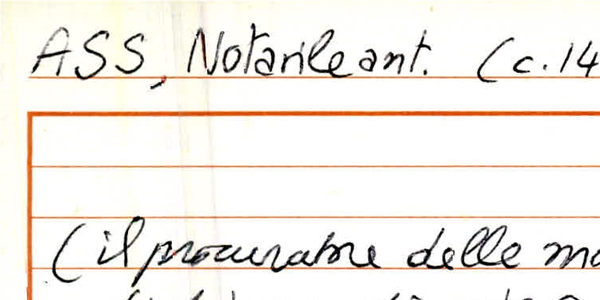 ASS, Notarile ant. (c. 14
(il procuratore delle mo